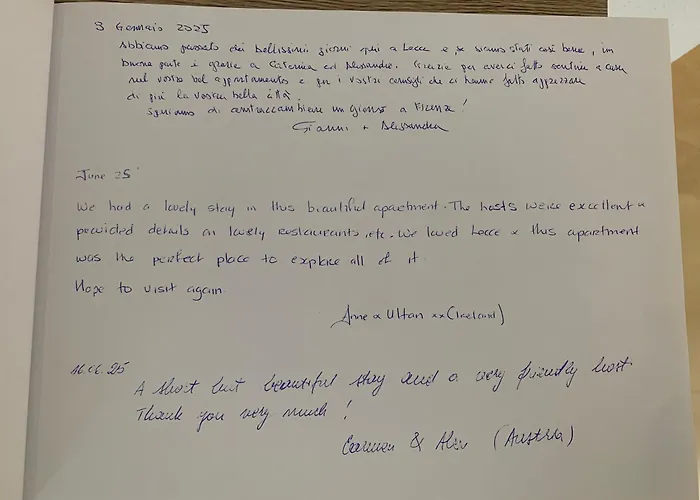 3 Gennaio 2025
Abbiamo passato dei bellissimi giorni qui a Lecce e se siamo stati così bene, in
buona parte è grazie a Caterina ed Alessandro. Grazie per averci fatto sentire a casa
nel vostro bel appartamento e per i vostri consigli che ci hanno fatto apprezzare
di più la vostra bella città.
Speriamo di contraccambiare un giorno a Vicenza!
Gianni + Alessandra
June 25
We had a lovely stay in this beautiful apartment. The hosts were excellent &
provided details on lovely restaurants, etc. We loved Lecce & this apartment
was the perfect place to explore all of it.
Hope to visit again.
Anne & Ultan xx (Ireland)
16.06.25
A short but beautiful stay and a very friendly host.
Thank you very much!
Carmen & Alex (Austria)